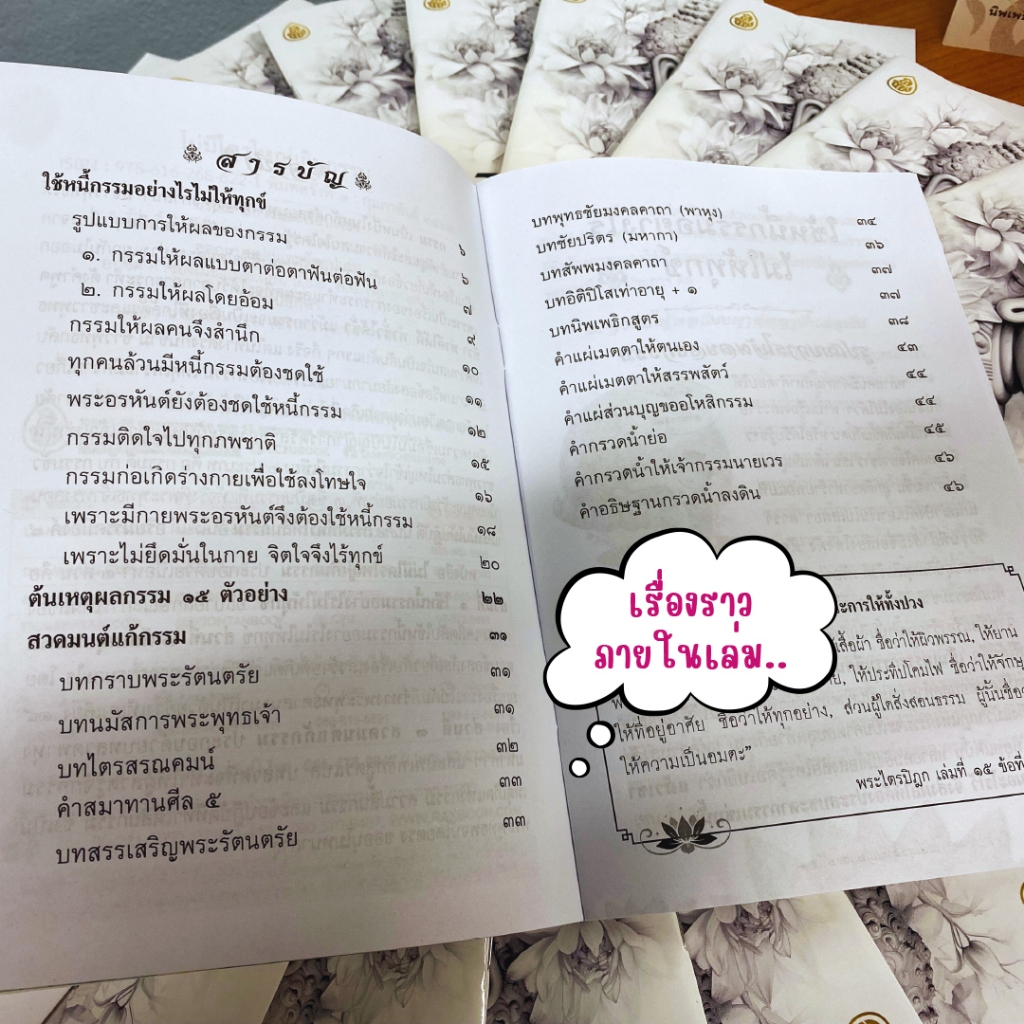 สารบัญ
ใช้หนี้กรรมอย่างไรไม่ให้ทุกข์ ๖
รูปแบบการให้ผลของกรรม ๖
๑. กรรมให้ผลแบบตาต่อตาฟันต่อฟัน ๗
๒. กรรมให้ผลโดยอ้อม ๙
กรรมให้ผลคนจึงสำนึก ๑๐
ทุกคนล้วนมีหนี้กรรมต้องชดใช้ ๑๑
พระอรหันต์ยังต้องชดใช้หนี้กรรม ๑๒
กรรมติดใจไปทุกภพชาติ ๑๕
กรรมก่อเกิดร่างกายเพื่อใช้ลงโทษใจ ๑๖
เพราะมีกายพระอรหันต์จึงต้องใช้หนี้กรรม ๑๘
เพราะไม่ยึดมั่นในกาย จิตใจจึงไร้ทุกข์ ๒๐
ต้นเหตุผลกรรม ๑๕ ตัวอย่าง ๒๒
สวดมนต์แก้กรรม ๓๑
บทกราบพระรัตนตรัย ๓๑
บทนมัสการพระพุทธเจ้า ๓๑
บทไตรสรณคมน์ ๓๒
คำสมาทานศีล ๕ ๓๓
บทสรรเสริญพระรัตนตรัย ๓๓
บทพุทธชัยมงคลคาถา (พาหุง) ๓๔
บทชัยปริตร (มหากา) ๓๖
บทสัพพมงคลคาถา ๓๗
บทอิติปิโสเท่าอายุ + ๑ ๓๗
บทนิพเพธิกสูตร ๓๘
คำแผ่เมตตาให้ตนเอง ๔๓
คำแผ่เมตตาให้สรรพสัตว์ ๔๔
คำแผ่ส่วนบุญขออโหสิกรรม ๔๔
คำกรวดน้ำย่อ ๔๕
คำกรวดน้ำให้เจ้ากรรมนายเวร ๔๖
คำอธิษฐานกรวดน้ำลงดิน ๔๖
เรื่องราว
ภายในเล่ม..
ะการให้ทั้งปวง
เสื้อผ้า ชื่อว่าให้ผิวพรรณ, ให้ยาน
ให้ประทีปโคมไฟ ชื่อว่าให้จักษุ
ให้ที่อยู่อาศัย ชื่อว่าให้ทุกอย่าง, ส่วนผู้ใดสั่งสอนธรรม ผู้นั้นชื่อว่
ให้ความเป็นอมตะ”
พระไตรปิฎก เล่มที่ ๑๕ ข้อที่